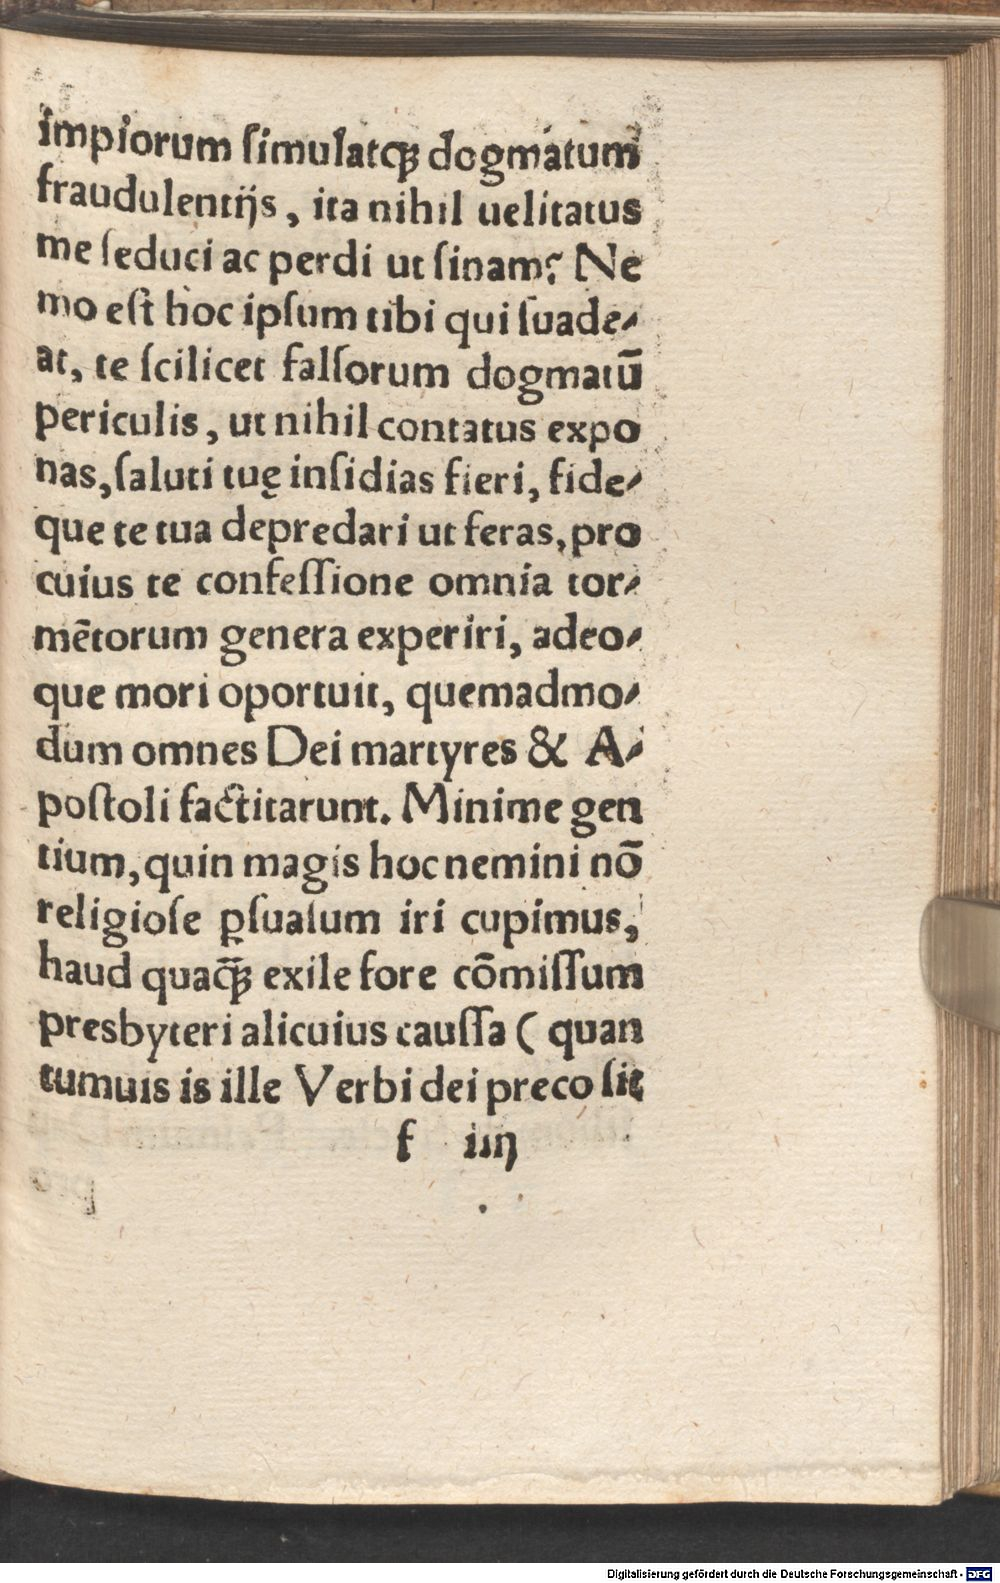 impiorum ſimulatq&#843; dogmatum
fraudulentijs, ita nihil uelitatus
me ſeduci ac perdi ut ſinam? Ne
mo eſt hoc ipſum tibi qui ſuade⸗
at, te ſcilicet falſorum dogmatū
periculis, ut nihil contatus expo
nas, ſaluti tuę inſidias fieri, fide⸗
que te tua depredari ut feras, pro
cuius te confeſſione omnia tor⸗
mētorum genera experiri, adeo⸗
que mori oportuit, quemadmo⸗
dum omnes Dei martyres & A⸗
poſtoli factitarunt. Minime gen
tium, quin magis hoc nemini nō
religioſe ꝑſuaſum iri cupimus,
haud quaq̄ꝫ exile fore cōmiſſum
presbyteri alicuius cauſſa ( quan
tumuis is ille Verbi dei preco ſit
f iiij
Digitalisierung gefördert durch die Deutsche Forschungsgemeinschaft - DFG